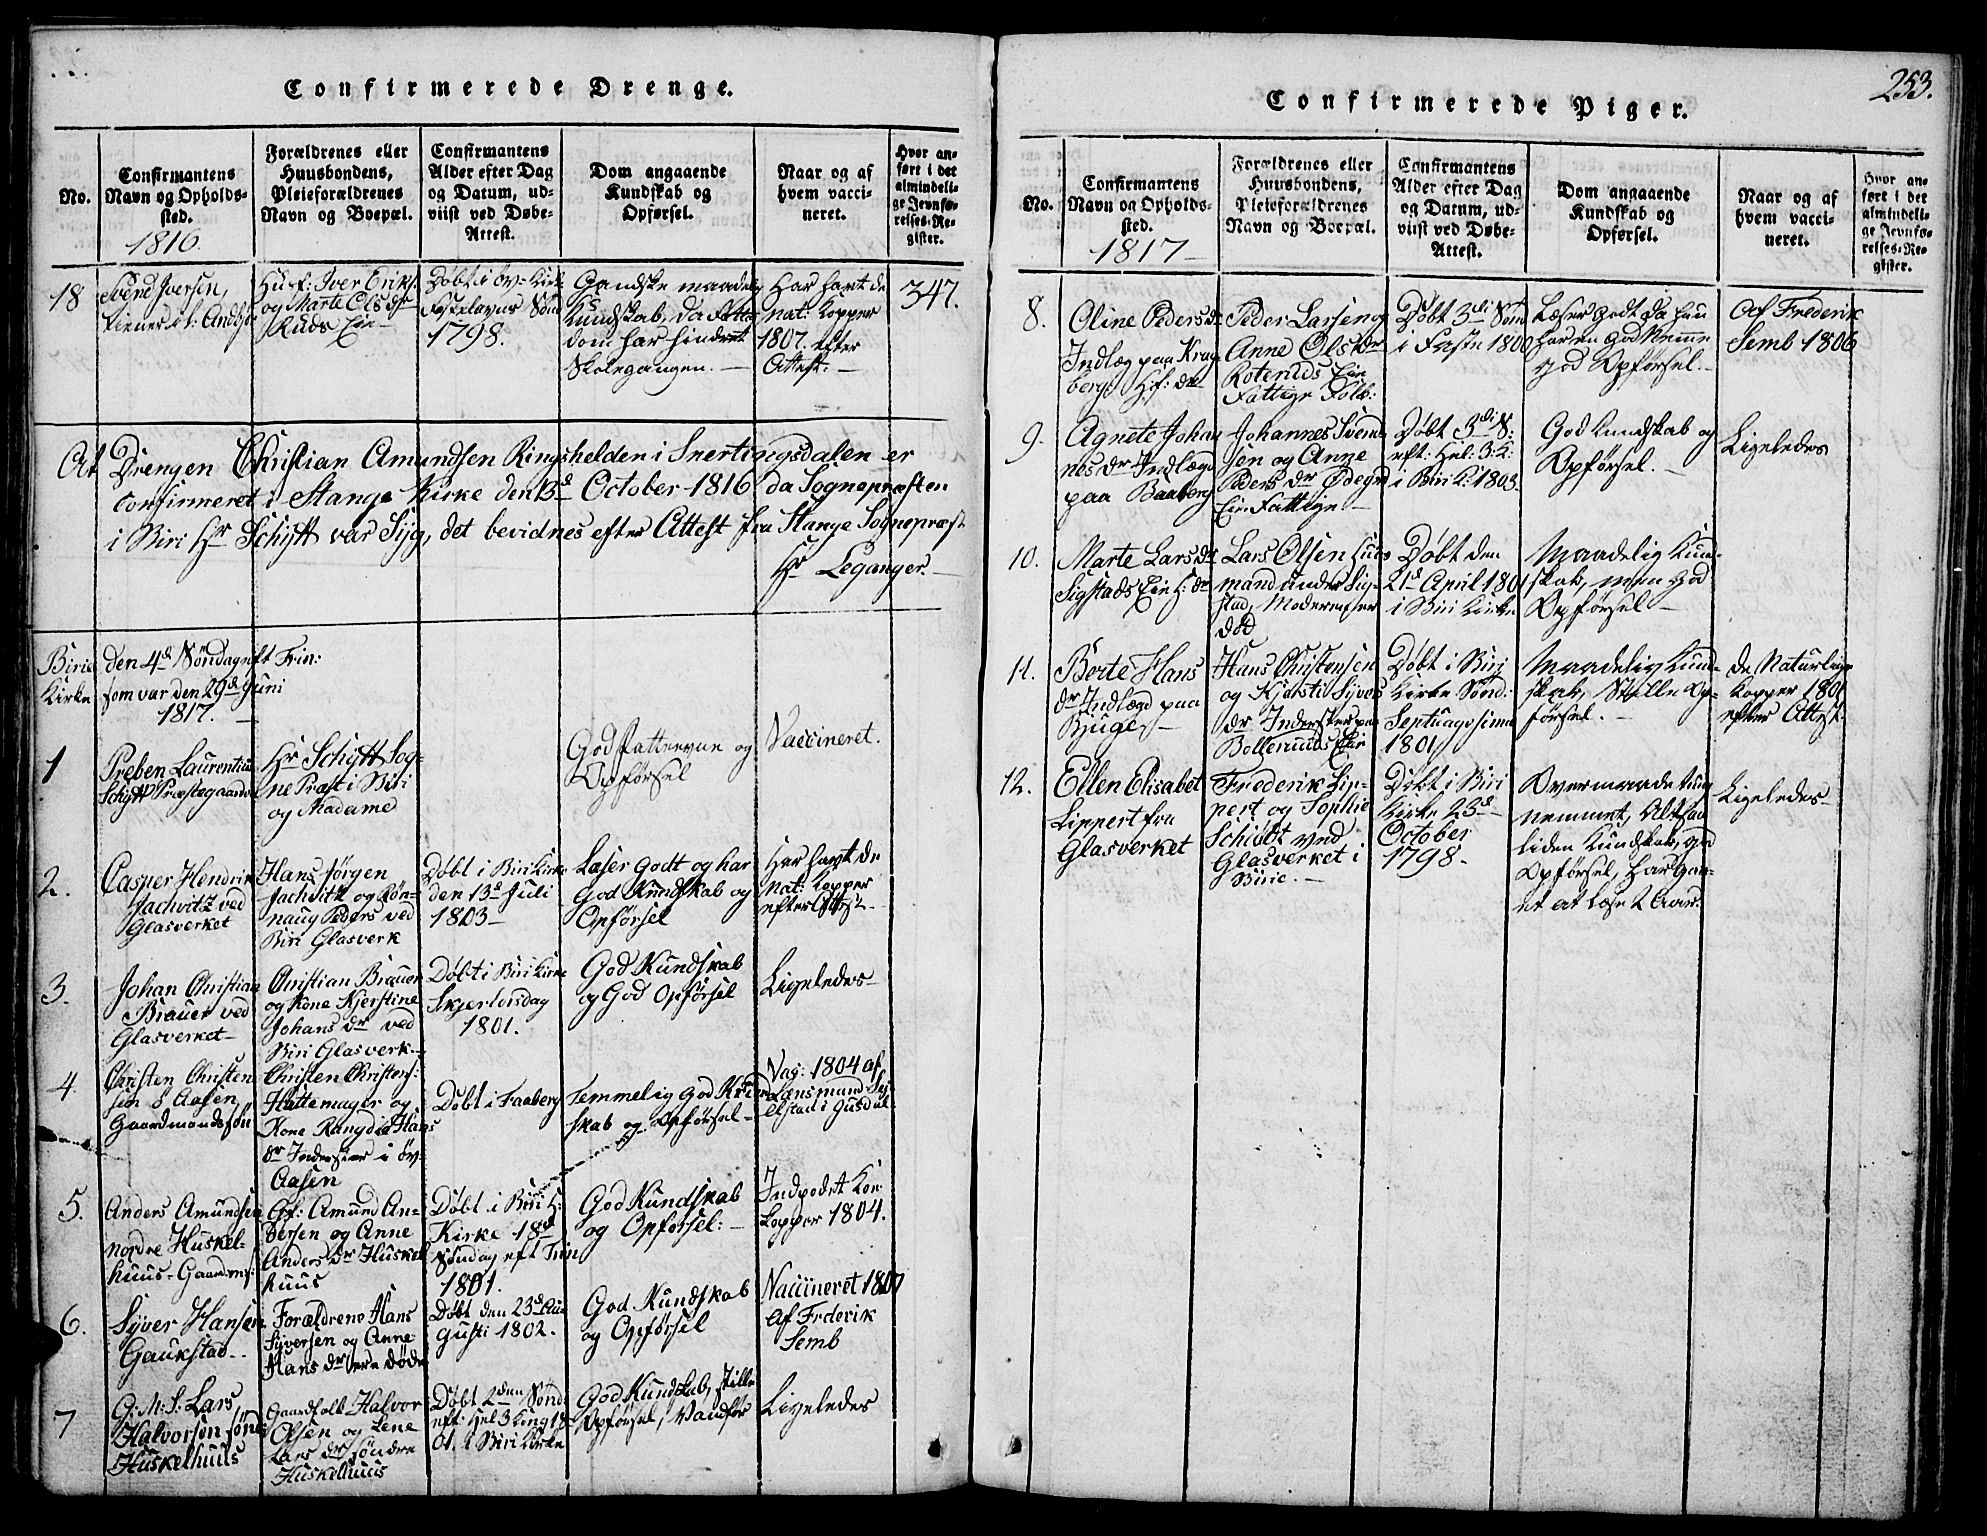 Confirmerede Drenge.
No.
Confirmantens
Navn og Opholds-
sted.
1816
Forældrenes eller
Huusbondens,
Pleieforældrenes
Navn og Boepæl.
Confirmantens
Alder efter Dag
og Datum, ud-
viist ved Døbe-
Attest.
Dom angaaende
Kundskab og
Opførsel.
Naar og af
hvem vacci-
neret.
Hvor an-
ført i det
almindeli-
ge Jevnfø-
relses-Re-
gister.
18
Svend Iversen,
tiener
Huusf: Iver Eriks:
og Marte Olsdr
Ruds Eie
Døbt i Kirk
Fastelavns Sønd
1798.
Gandske maadelig
Kundskab, da Fattig
dom har hindret
Skolegangen. —
Har havt de
nat: Kopper
1807. efter
Attest: —
347.
At Drengen Christian Amundsen Ringshelden i Snertingsdalen er
confirmeret i Stange Kirke den 13d October 1816 da Sognepræsten
i Biri Hr Schytt var Syg, det bevidnes efter Attest fra Stange Sognepræst
Hr Leganger. —
Birie
Kirke
den 4d Søndag eft Trin:
som var den 29d Juni
1817. —
1
Preben Laurentius
Schytt Præstegaarden
Hr Schytt Sog-
ne Præst i Biri
og Madame
God Fatteevne og
Opførsel
Vaccineret.
2.
Casper Hendrik
Jachvitz ved
Glasverket
Hans Jørgen
Jachvitz og Røn-
naug Peders ved
Biri Glasverk
Døbt i Biri Kirke
den 13d Juli
1803 —
Læser godt og har
god Kundskab og
Opførsel
Har havt de
Nat: Kopper
efter Attest
3.
Johan Christian
Brauer ved
Glasverket —
Christian Brauer
og Kone Kjerstine
Johans dr ved
Biri Glasverk —
Døbt i Biri Kirke
Skjertorsdag
1801.
God Kundskab
og God Opførsel
Ligeledes —
4.
Christen Christen
sen Aasen,
Gaardmandsøn
Christen Christens:
Hattemager og
Kone Rangdia Hans
dr Inderster i øv:
Aasen
Døbt i Faaberg
Temmelig God Kund
skab og Opførsel —
Vac: 1804 af
Lænsmand
elstad i Gusdal
5.
Anders Amundsen
nordre Huskel-
huus - Gaardms:
Gf: Amund An-
dersen og Anne
Anders dr Huskel
huus
Døbt i Biri H:
Kirke 18de
Søndag eft Trin
1801.
God Kundskab
og Opførsel: —
Indpodet Koe
Kopper 1804.
6.
Syver Hansen
Gaukstad —
Forældrene Hans
Syversen og Anne
Hans dr ere døde
Døbt den 23d Au
gusti 1802.
God Kundskab
og Opførsel
Vaccineret 1807
af Frderik
Semb
7
G: M: S. Lars
Halvorsen søndre
Huskelhuus
Gaardfolk Halvor
Olsen og Lene
Lars dr søndre
Huskelhuus
Døbt 2den Sønd:
eft: Hel 3 Kong 18
01. i Biri Kirke
God Kundskab, stille
Opførsel, Vandfør
Ligeledes
253.
Confirmerede Piger.
No.
Confirmantens
Navn og Opholds-
sted.
1817 —
Forældrenes eller
Huusbondens,
Pleieforældrenes
Navn og Boepæl.
Confirmantens
Alder efter Dag
og Datum, ud-
viist ved Døbe-
Attest.
Dom angaaende
Kundskab og
Opførsel.
Naar og af
hvem vacci-
neret.
Hvor an-
ført i det
almindeli-
ge Jevnfø-
relses-Re-
gister.
8.
Oline Peders dr
Indlæg paa Krag
bergs
Peder Larsen og
Anne Ols dr
Roteruds Eie
Fattige Folk:
Døbt 3di Sønd
i Faste 1800
Læser godt da hun
har en god Nemme
god Opførsel. —
Af Frederik
Semb 1806
9.
Agnete Johan
nes dr Indlægd
paa Baaberg
Johannes Svend
sen og Anne
Peders dr Ødegrd
Eie. Fattige —
Døbt 3di S:
eft: Hel: 3: K:
i Biri K: 1803.
God Kundskab og
Opførsel. —
Ligeledes
10.
Marte Lars dr
Sigstads Eie H: dr
Lars Olsen Huus
mand under Sig-
stad, Moderen er
død
Døbt den
21d April 1801
i Biri Kirke
Maadelig Kund
skab, men god
Opførsel —
11.
Borte Hans
dr Indlægd paa
Bjuge —
Hans Christensen
og Kjersti Syvers
dr Inderster paa
Bolleruds Eie
Døbt i Biri
Kirke Sønd:
Septuagesima
1801
Maadelig Kund-
skab, Stille Op-
førsel. —
De Naturlige
Kopper 1801
efter Attest.
12.
Ellen Elisabet
Lippert fra
Glasverket
Frederik Lip-
pert og Sophie
Schiødt ved
Glasverket i
Birie. —
Døbt i Biri
Kirke 23d
October
1798.
Overmaade tung
nemmet, Altsaa
liden Kundskab, god
Opførsel, har gaa-
et at læse 2 Aar.
Ligeledes —